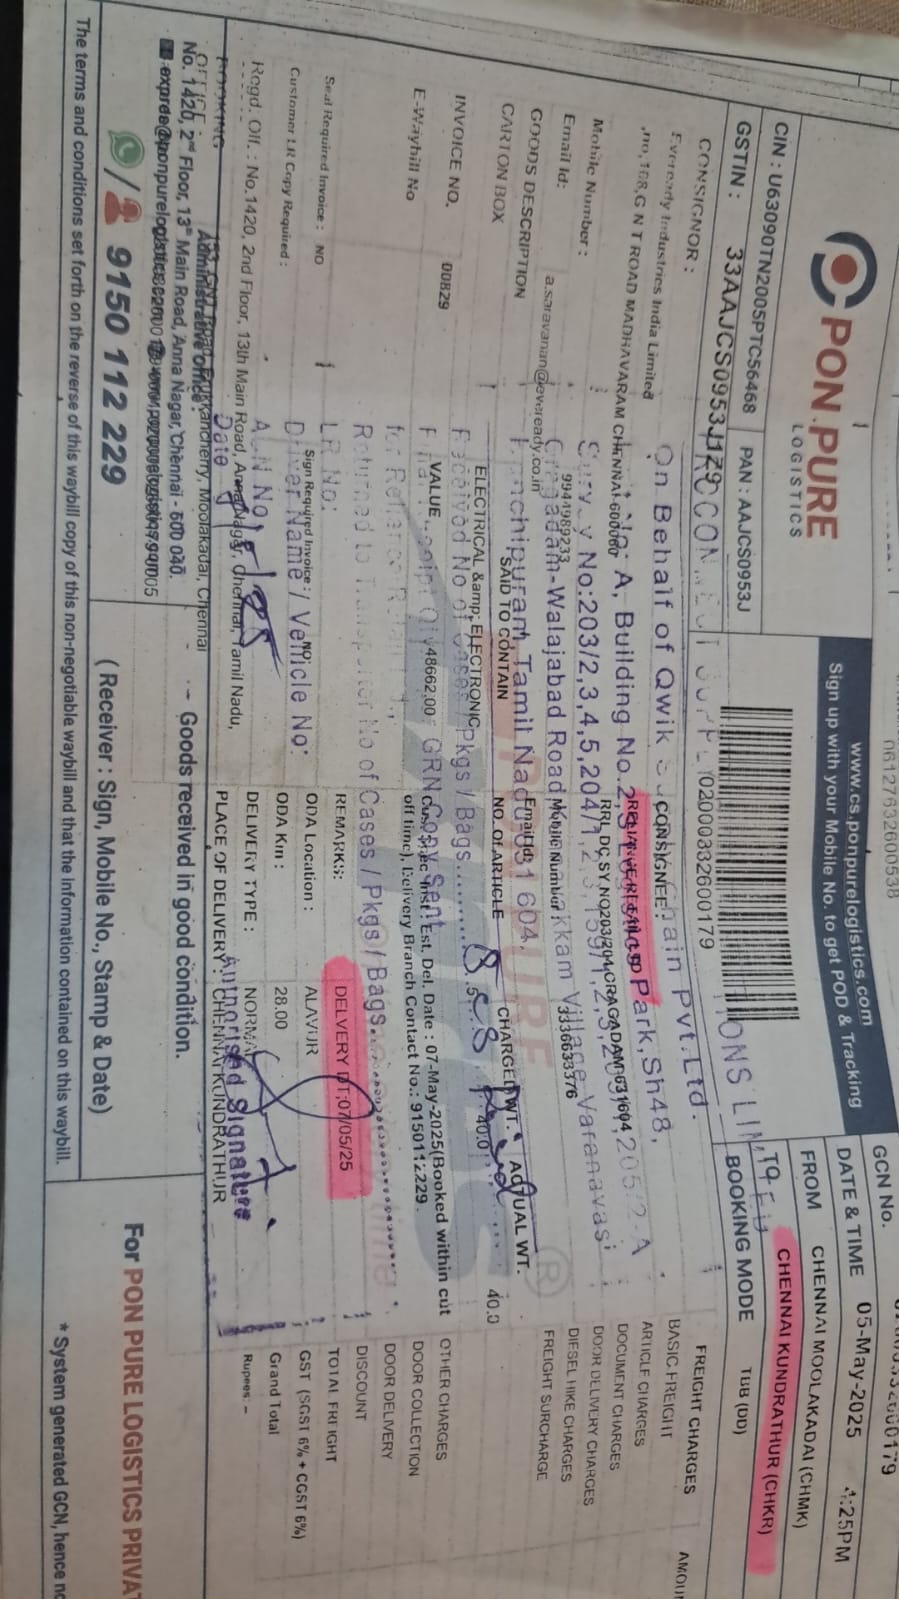 PON PURE
LOGISTICS
www.cs.ponpurelogistics.com
Sign up with your Mobile No. to get POD & Tracking
0612763260053
GCN No.
DATE & TIME 05-May-2025 4:25PM
FROM CHENNAI MOOLAKADAI (CHMK)
TO CHENNAI KUNDRATHUR (CHKR)
BOOKING MODE TBB (DD)
CIN : U63090TN2005PTC56468
PAN : AAJCS0953J
GSTIN : 33AAJCS0953J1Z9
020008332600179
CONSIGNOR :
Eveready Industries India Limited
,no,168,G N T ROAD MADHAVARAM CHENNAI-600060
Mobile Number : 9941989233
Email Id: a.saravanan@eveready.co.in
CONSIGNEE
RRL DC SY NO203/204,ORAGADAM-631604
Mobile Number 3336633376
Email Id:
On Behalf of Qwik Supply Chain Pvt.Ltd.
A, Building No.2, Park,Sh48,
Survey No:203/2,3,4,5,204/1,2,3,
-Walajabad Road, Village Varanavasi
Kanchipuram, Tamil Nadu 631 604.
Received No of Cases / Pkgs / Bags
8
GRN Copy Sent
for Reference
Returned to Transporter No of Cases / Pkgs / Bags
LR No:
Driver Name / Vehicle No:
Date
Authorised Signature
GOODS DESCRIPTION
SAID TO CONTAIN
NO. OF ARTICLE
CHARGED WT.
ACTUAL WT.
CARTON BOX
ELECTRICAL &amp; ELECTRONIC
40.0
40.0
INVOICE NO. 00829
VALUE 48662.00
E-Waybill No
Est. Del. Date : 07-May-2025(Booked within cut
off time), Delivery Branch Contact No.: 9150112229
Seal Required Invoice : NO
Sign Required Invoice : NO
Customer LR Copy Required :
REMARKS: DELVERY DT;07/05/25
ODA Location : ALAVUR
ODA Km : 28.00
DELIVERY TYPE : NORMAL
PLACE OF DELIVERY : CHENNAI KUNDRATHUR
FREIGHT CHARGES
BASIC FREIGHT
ARTICLE CHARGES
DOCUMENT CHARGES
DOOR DELIVERY CHARGES
DIESEL HIKE CHARGES
FREIGHT SURCHARGE
OTHER CHARGES
DOOR COLLECTION
DOOR DELIVERY
DISCOUNT
TOTAL FREIGHT
GST (SGST 6% + CGST 6%)
Grand Total
Rupees: -
Regd. Off. : No.1420, 2nd Floor, 13th Main Road, Anna Nagar, Chennai, Tamil Nadu,
BOOKING OFFICE :
Administrative office:
No. 1420, 2nd Floor, 13th Main Road, Anna Nagar, Chennai - 600 040.
9150 112 229
Goods received in good condition.
( Receiver : Sign, Mobile No., Stamp & Date)
For PON PURE LOGISTICS PRIVAT
The terms and conditions set forth on the reverse of this waybill copy of this non-negotiable waybill and that the information contained on this waybill.
* System generated GCN, hence no